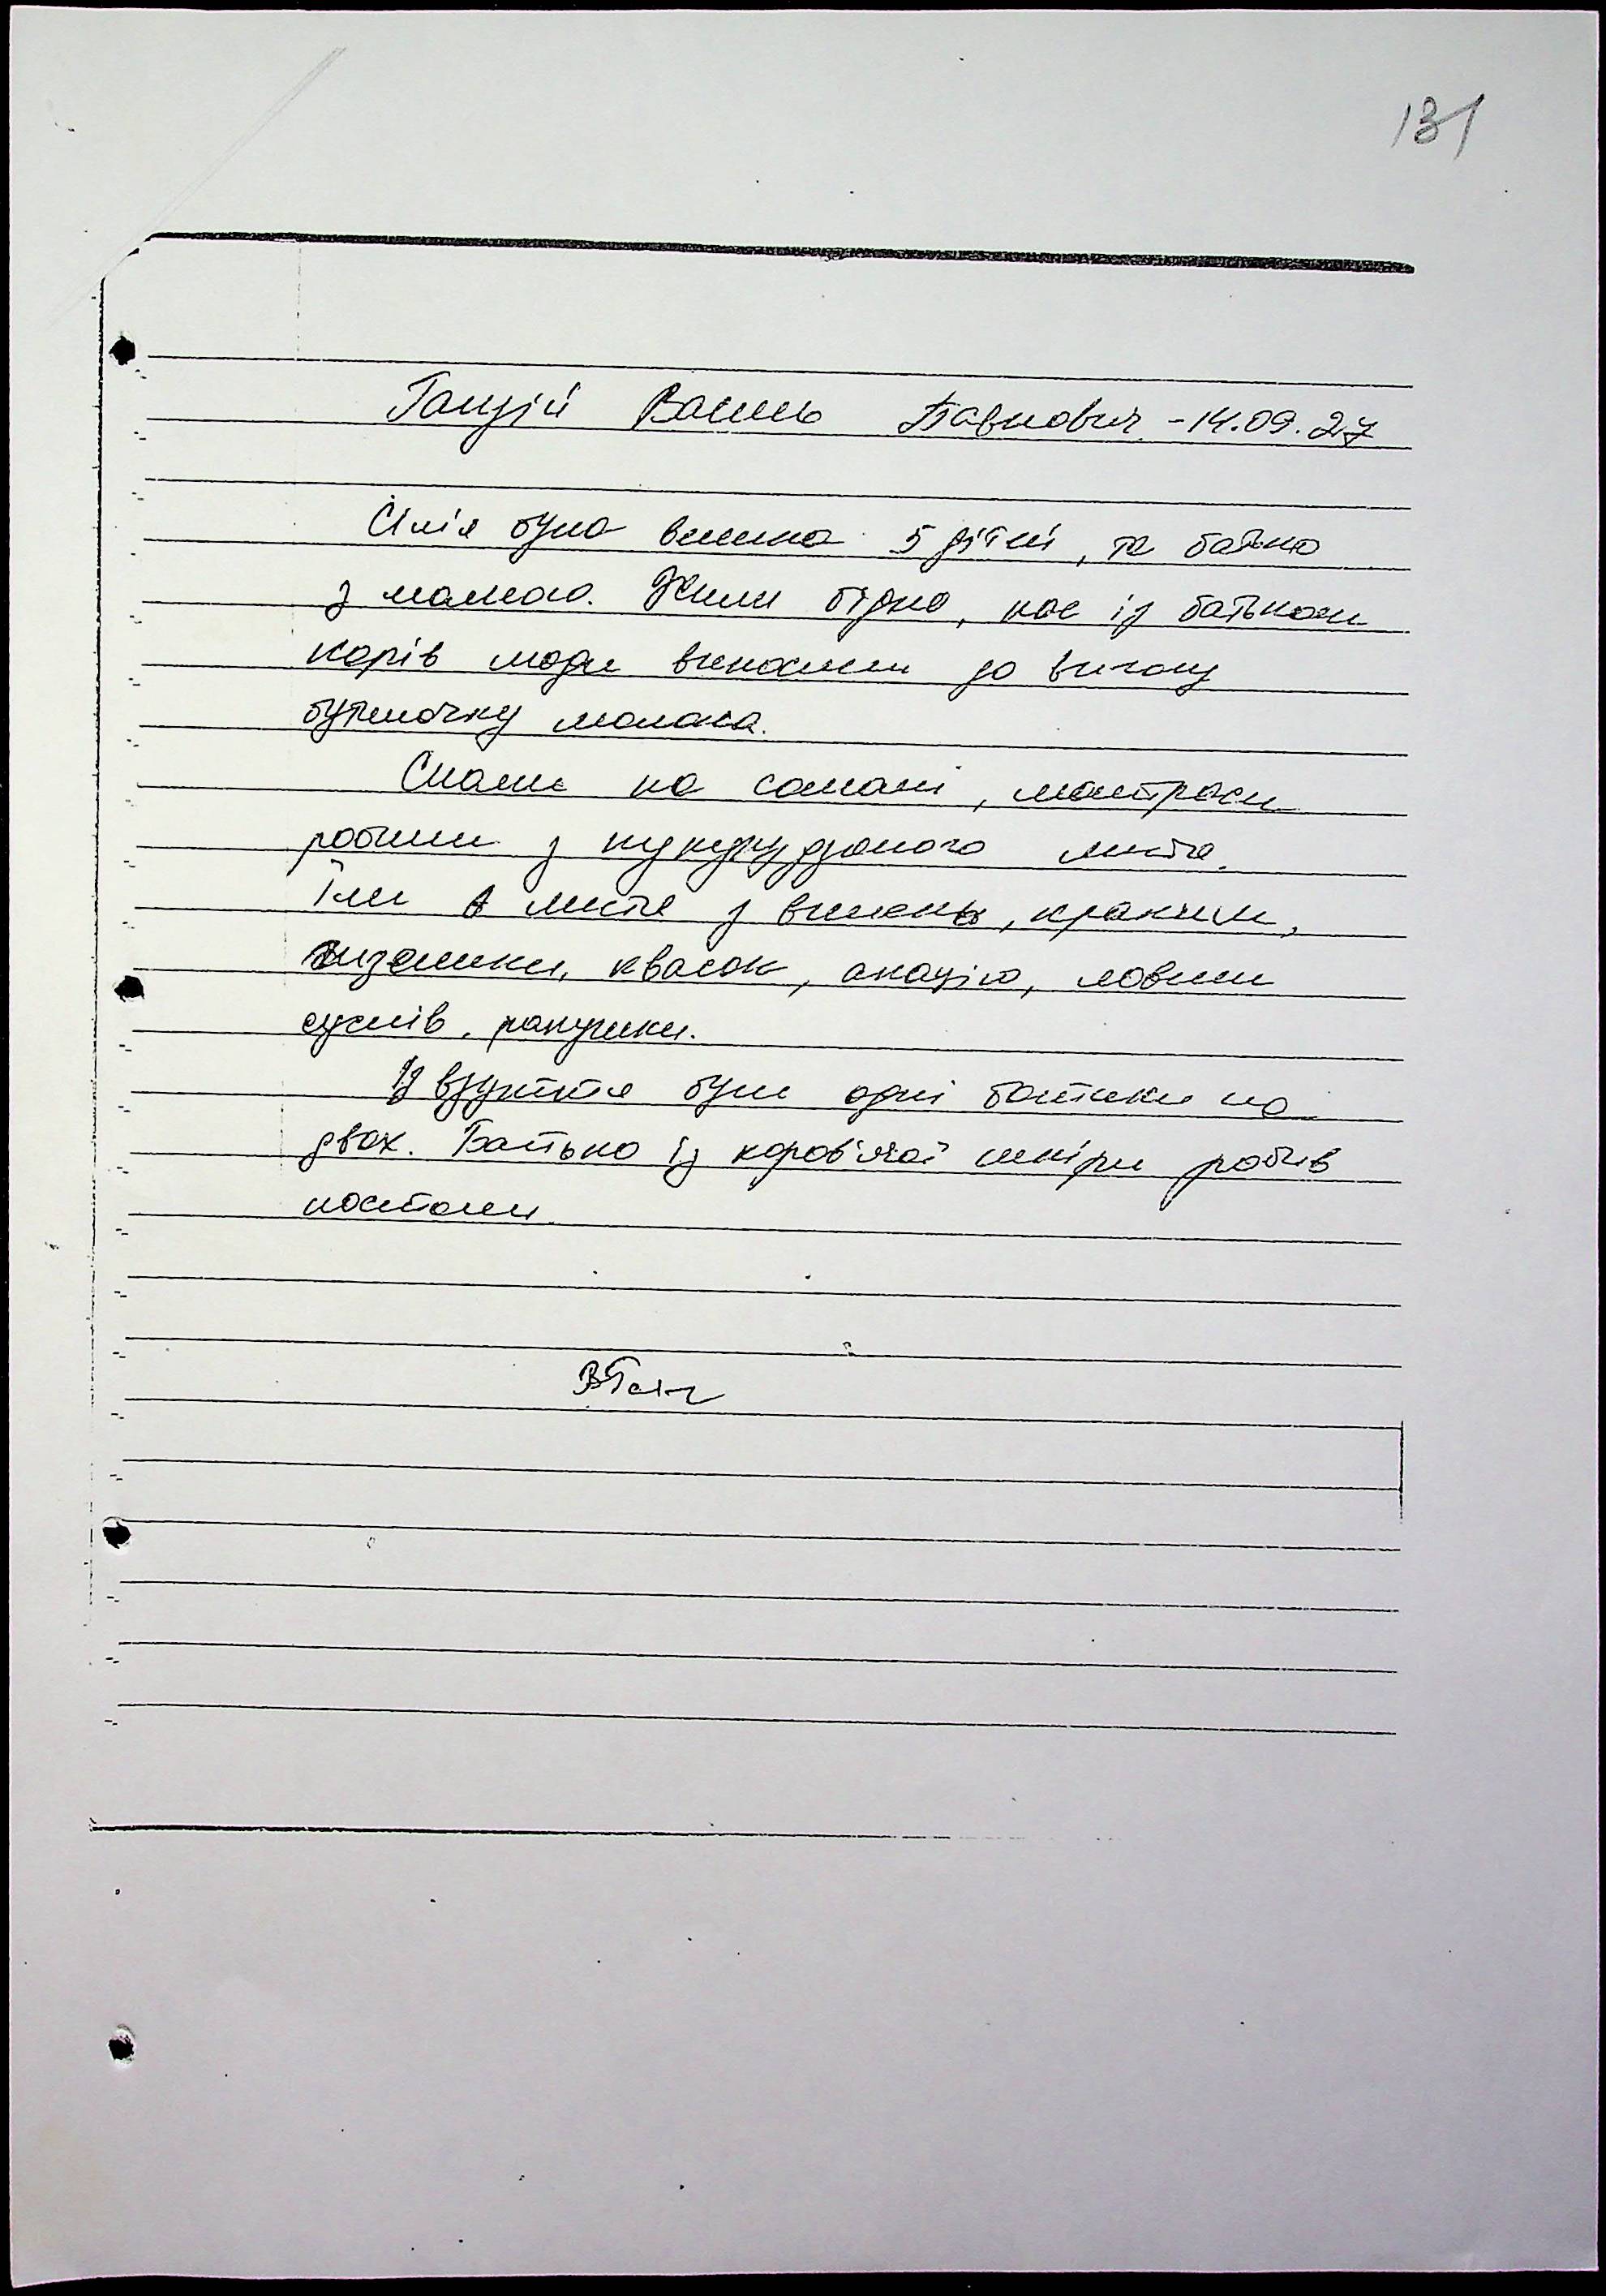 131
Ганзій Василь Павлович - 14.09.27
Сім'я була велика 5 дітей, та батько
з мамою. Жили бідно, пас із батьком
корів люди виносили до вигону
бутилочку молока.
Спали на соломі, мантраси
робили з кукурудзяного листя.
Їли листя з вишень, кропиви,
квасок, акацію, ловили
суслів, ракушки.
Із взуття були одні ботинки на
двох. Батько із коров'ячої шкіри робив
постоли.